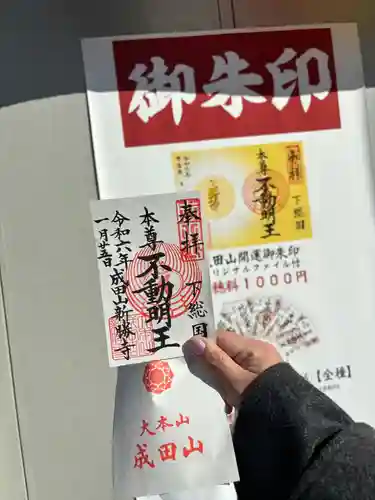 御朱印
奉拝
本尊
不動明王
下総国
田山開運御朱印
リジナルファイル付
1000円
【全種】
奉拝
下総国
本尊
不動明王
成田山新勝寺
令和六年
一月廿五日
大本山
成田山